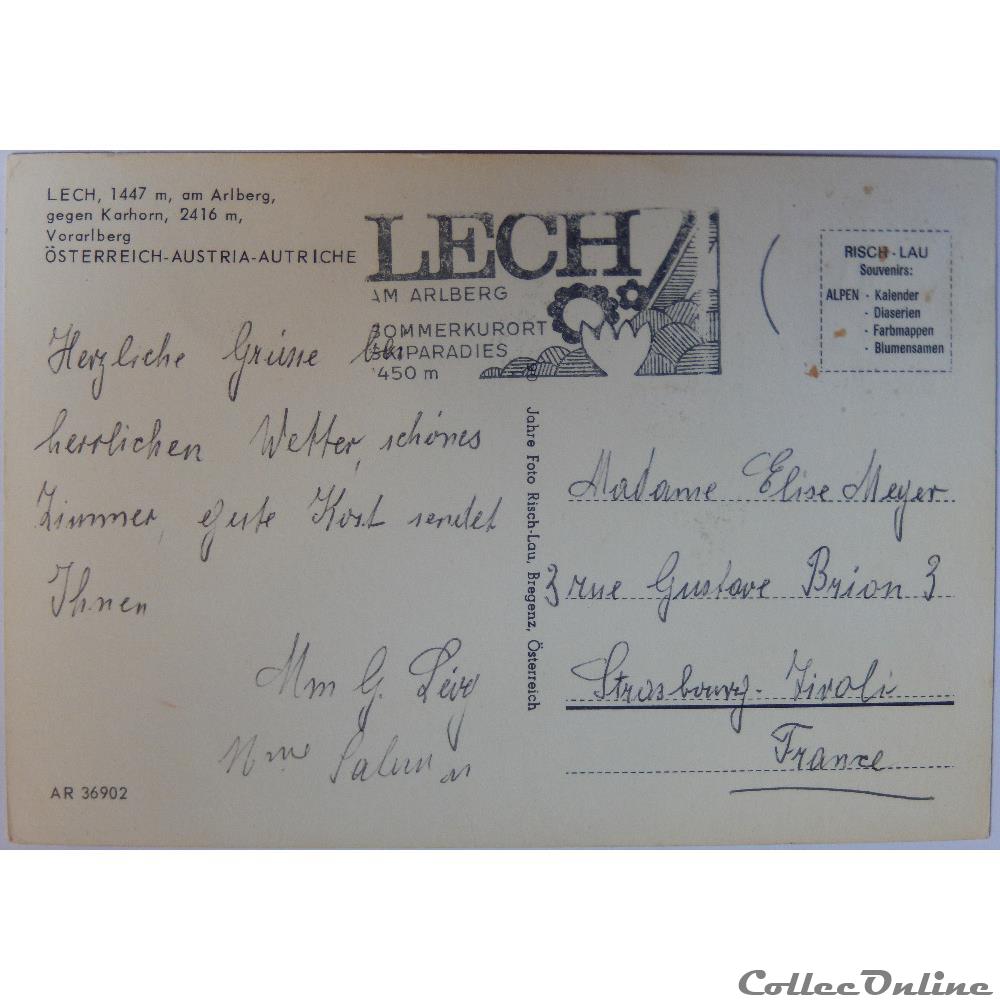 LECH, 1447 m, am Arlberg,
gegen Karhorn, 2416 m,
Vorarlberg
ÖSTERREICH-AUSTRIA-AUTRICHE
LECH
AM ARLBERG
SOMMERKURORT
SKIPARADIES
1450 m
RISCH-LAU
Souvenirs:
ALPEN - Kalender
- Diaserien
- Farbmappen
- Blumensamen
Herzliche Grüsse bei
herrlichen Wetter, schönes
Zimmer, gute Kost sendet
Ihnen
Mm G. Lévy
Mme
AR 36902
Jahre Foto Risch-Lau, Bregenz, Österreich
Madame Elise Meyer
3 rue Gustave Brion 3
Strasbourg-Tivoli
France
CollecOnline